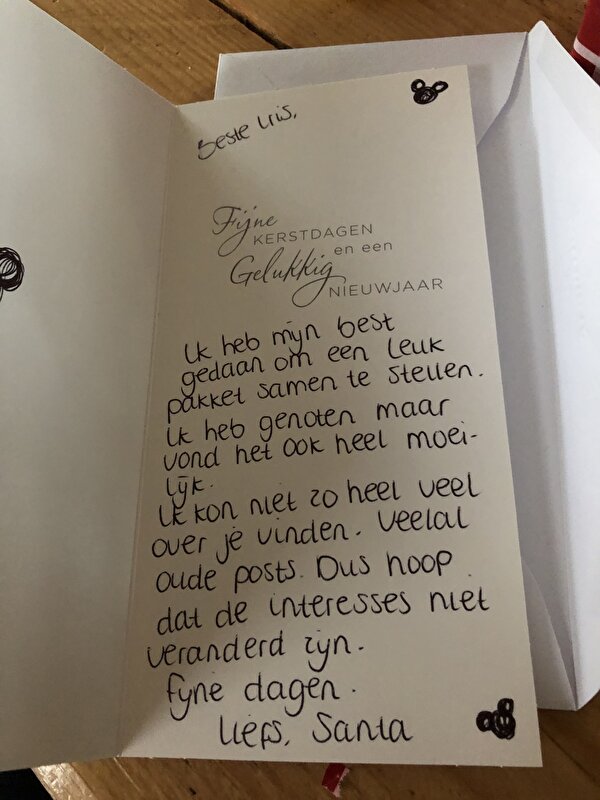 Beste Iris,
Fijne
KERSTDAGEN
en een
Gelukkig
NIEUWJAAR
Ik heb mijn best
gedaan om een leuk
pakket samen te stellen.
Ik heb genoten maar
vond het ook heel moei-
lijk.
Ik kon niet zo heel veel
over je vinden. Veelal
oude posts. Dus hoop
dat de interesses niet
veranderd zijn.
Fijne dagen.
Liefs, Santa